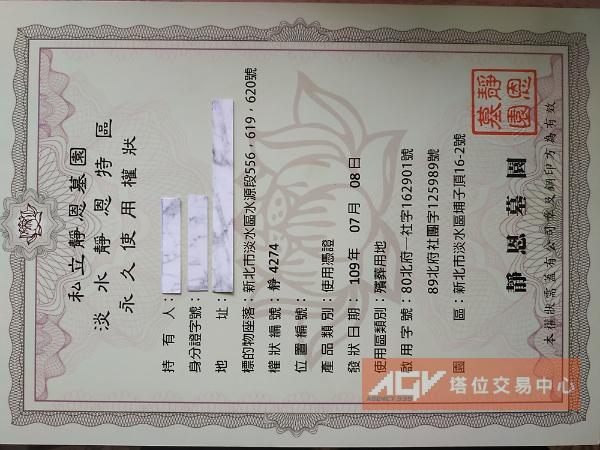 私立靜恩墓園
淡水靜恩特區
永久使用權狀
持有人：
身分證字號：
地址：
標的物座落：新北市淡水區水源段556，619，620號
權狀編號：靜 4274
位置編號：
產品類別：使用憑證
發狀日期：109年 07月 08日
使用區類別：殯葬用地
啟用字號：80北府一社字162901號
89北府社團字125989號
園區：新北市淡水區埔子頂16-2號
靜恩墓園
靜恩墓園
本權狀需蓋有公司徽及鋼印方為有效
AGV 塔位交易中心
AGENCY 999